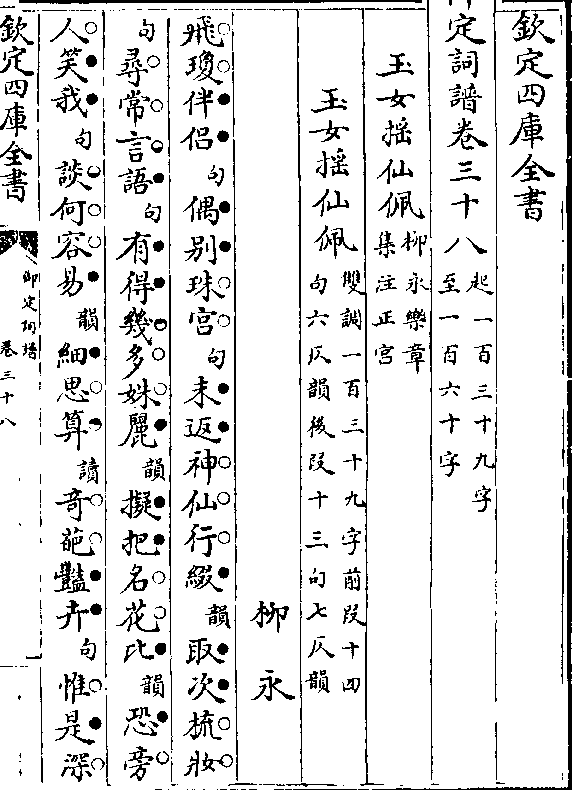 欽定四庫全書
定詞譜卷三十八起一百三十九字
至一百六十字
玉女揺仙佩柳永樂章
集注正宫
玉女揺仙佩雙調一百三十九字前段十四
句六仄韻後段十三句七仄韻
柳永
飛瓊伴侣句偶别珠宫句未返神仙行綴韻取次梳妝
句尋常言語句有得幾多姝麗韻擬把名花比韻恐旁
人笑我句談何容易韻細思算讀奇葩豔卉句惟是深
欽定四庫全書
御定詞譜
卷三十八